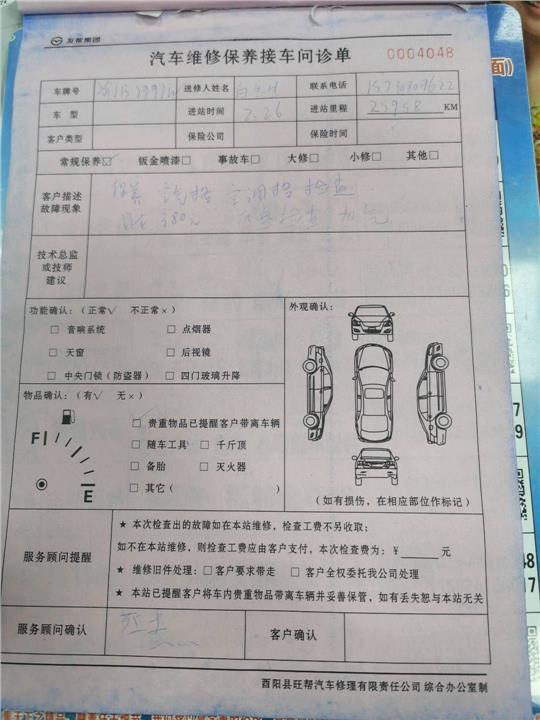 友帮集团
汽车维修保养接车问诊单 0004048
车牌号 送修人姓名 联系电话
车 型 进站时间 2.26 进站里程 25958 KM
客户类型 保险公司 保险时间
常规保养☑ 钣金喷漆□ 事故车□ 大修□ 小修□ 其他□
客户描述
故障现象
保养 空调格 检查
380元 加气
技术总监
或技师
建议
功能确认：（正常√ 不正常×） 外观确认：
□ 音响系统 □ 点烟器
□ 天窗 □ 后视镜
□ 中央门锁（防盗器） □ 四门玻璃升降
物品确认：（有√ 无×）
□ 贵重物品已提醒客户带离车辆
F
□ 随车工具 □ 千斤顶
□ 备胎 □ 灭火器
E
□ 其它（ ）
（如有损伤，在相应部位作标记）
服务顾问提醒
★ 本次检查出的故障如在本站维修，检查工费不另收取；
如不在本站维修，则检查工费应由客户支付，本次检查费为：￥____元
★ 维修旧件处理：□ 客户要求带走 □ 客户全权委托我公司处理
★ 本站已提醒客户将车内贵重物品带离车辆并妥善保管，如有丢失恕与本站无关
服务顾问确认 客户确认
酉阳县旺帮汽车修理有限责任公司 综合办公室制